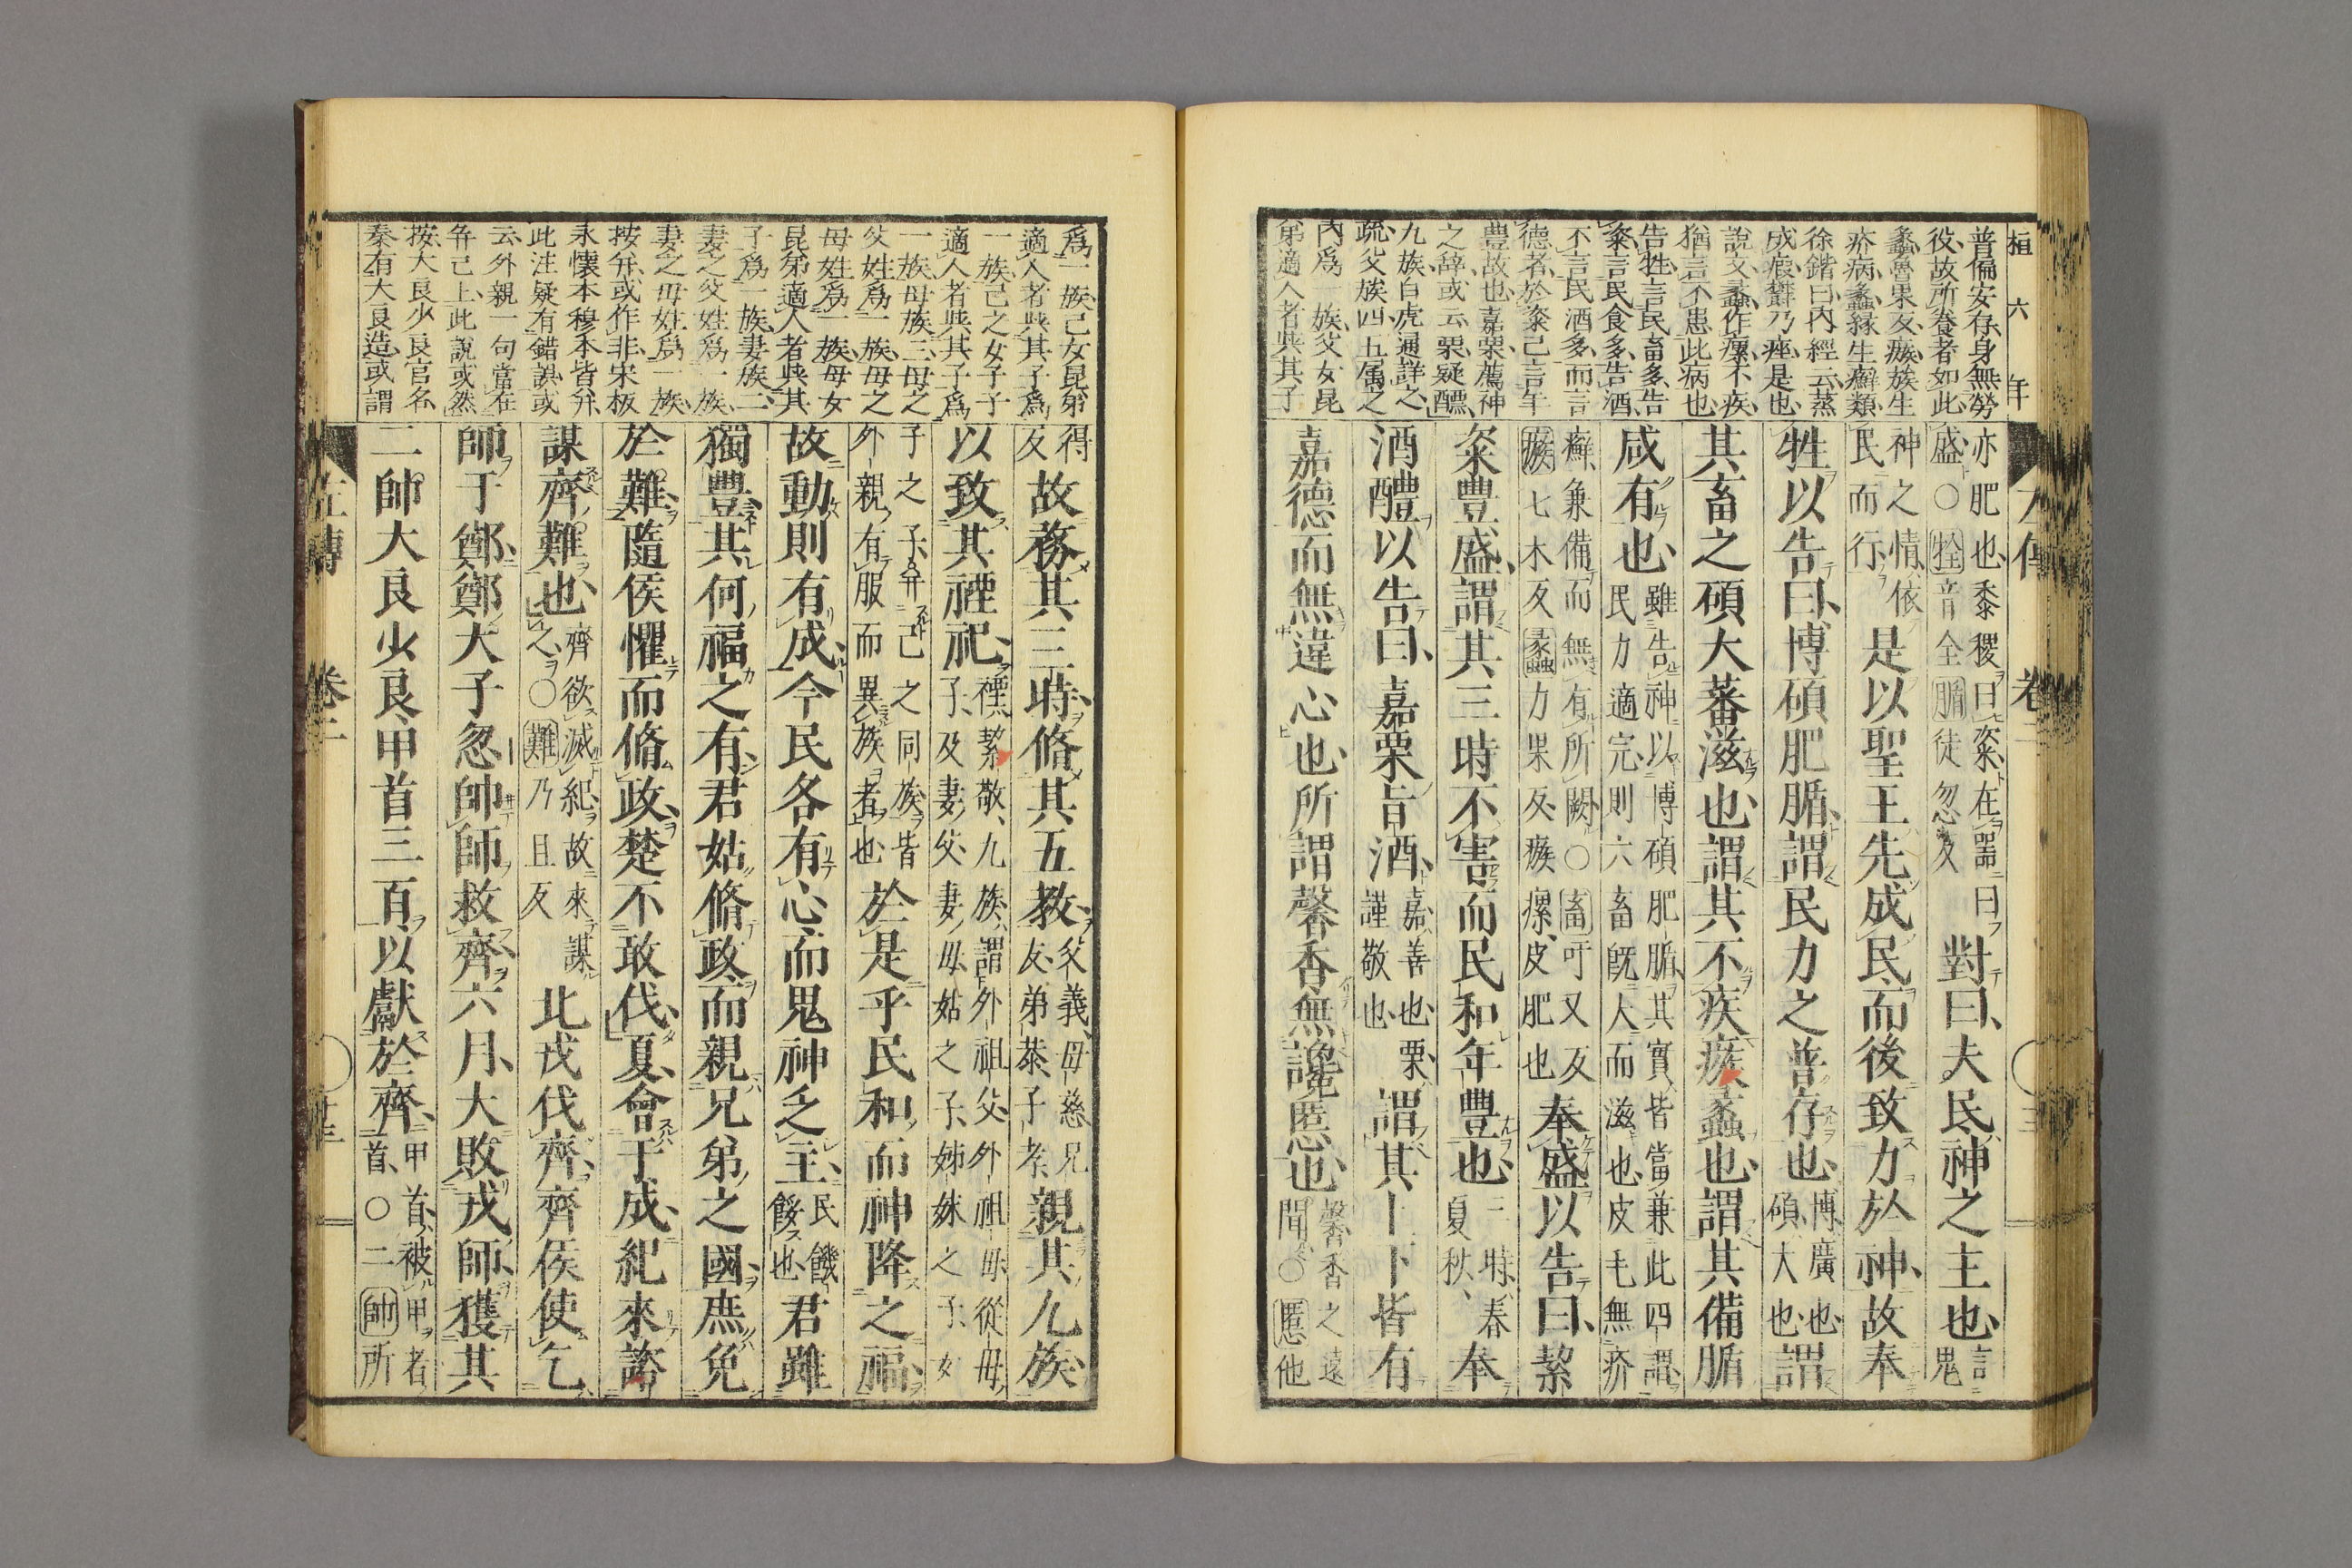 桓六年
普偏安存身無勞
役故所養者如此
蠡魯果反瘯族生
疥病蠡緣生癬類
徐鍇曰內經云蒸
成瘕欝乃痤是也
說文蠡作瘰不疾
猶言不患此病也
告牲言民畜多告
粢言民食多告酒
不言民酒多而言
德者於粢己言年
豊故也嘉栗薦神
之辞或云栗疑醴
九族白虎通詳之
疏父族四五属之
內爲一族父女昆
弟適人者與其子
左傳 卷二
亦肥也黍稷曰粢在器曰
盛○牷音全腯徒忽反
對曰夫民神之主也
言鬼
神之情依
民而行
是以聖王先成民而後致力於神故奉
牲以告曰博碩肥腯謂民力之普存也
博廣也
碩大也
謂
其畜之碩大蕃滋也謂其不疾瘯蠡也謂其備腯
咸有也
雖告神以博碩肥腯其實皆當兼此四謂
民力適完則六畜既大而滋也皮毛無疥
癬兼備而無有所闕○畜吁又反
瘯七木反蠡力果反瘯瘰皮肥也
奉盛以告曰絜
粢豊盛謂其三時不害而民和年豊也
三時春
夏秋
奉
酒醴以告曰嘉栗旨酒
嘉善也栗
謹敬也
謂其上下皆有
嘉德而無違心也所謂馨香無讒慝也
馨香之遠
聞○慝他
爲一族己女昆弟
適人者與其子爲
一族己之女子子
適人者與其子爲
一族母族三母之
父姓爲一族母之
母姓爲一族母女
昆弟適人者與其
子爲一族妻族二
妻之父姓爲一族
妻之母姓爲一族
按弁或作非宋板
永懷本穆本皆弁
此注疑有錯誤或
云外親一句當在
弁己上此說或然
按大良少良官名
秦有大良造或謂
得
反
故務其三時脩其五教
父義母慈兄
友弟恭子孝
親其九族
以致其禋祀
禋絜敬九族謂外祖父外祖母從母
子及妻父妻母姑之子姊妹之子女
子之子弁己之同族皆
外親有服而異族者也
於是乎民和而神降之福
故動則有成今民各有心而鬼神乏主
民饑
餒也
君雖
獨豊其何福之有君姑脩政而親兄弟之國庶免
於難隨侯懼而脩政楚不敢伐夏會于成紀來諮
謀齊難也
齊欲滅紀故來謀
之○難乃旦反
北戎伐齊齊侯使乞
師于鄭鄭大子忽帥師救齊六月大敗戎師獲其
二帥大良少良甲首三百以獻於齊
甲首被甲者
首○二帥所
左傳 卷二 十三